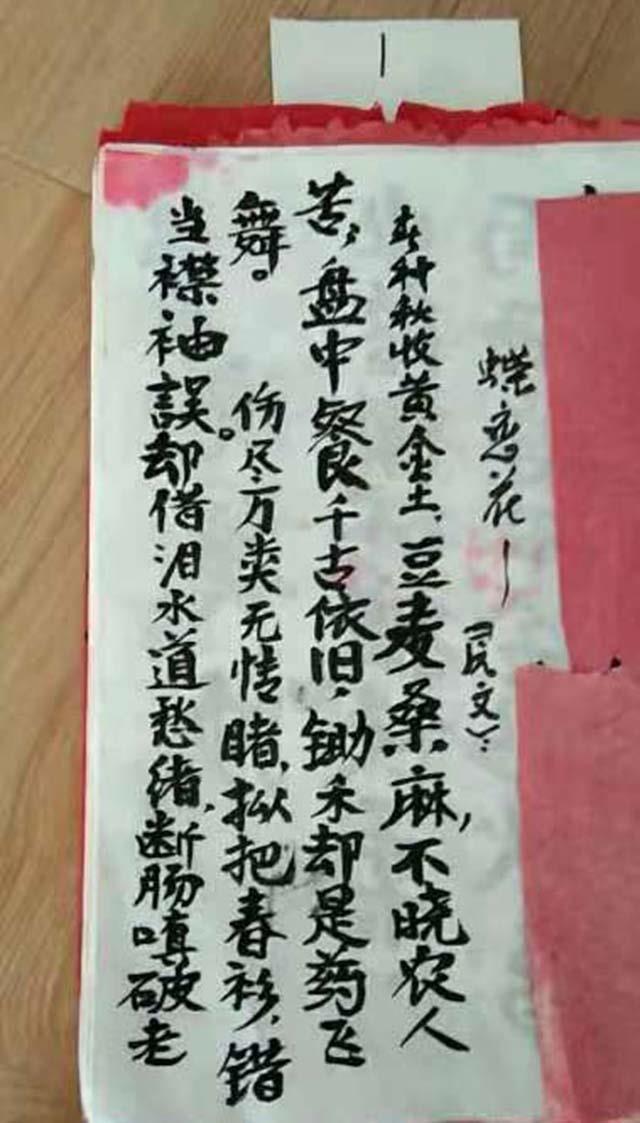 蝶恋花一
（民文）：
春种秋收黄金土、豆麦桑麻，不晓农人
苦，盘中餐千古依旧，锄禾却是药飞
舞。 伤尽万类无情睹，拟把春衫，错
当襟袖。误却借泪水道愁绪，断肠嗔破老